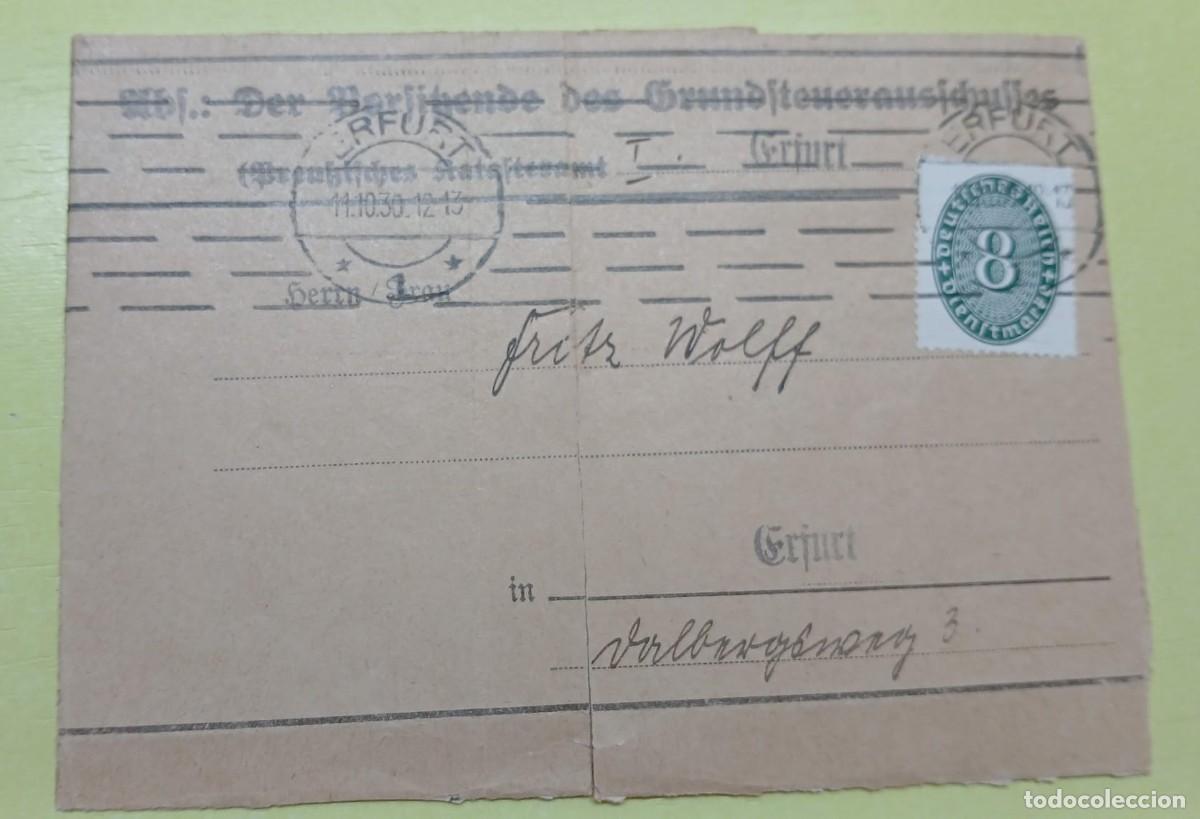 Abs.: Der Vorsitzende des Grundsteuerausschusses
(Preußisches Katasteramt I. Erfurt
ERFURT
11.10.30. 12-13
* 1 *
ERFURT
Deutsches Reich
8
Dienstmarke
Herrn / Frau
Fritz Wolff
Erfurt
in
Dalbergsweg 3.
todocoleccion